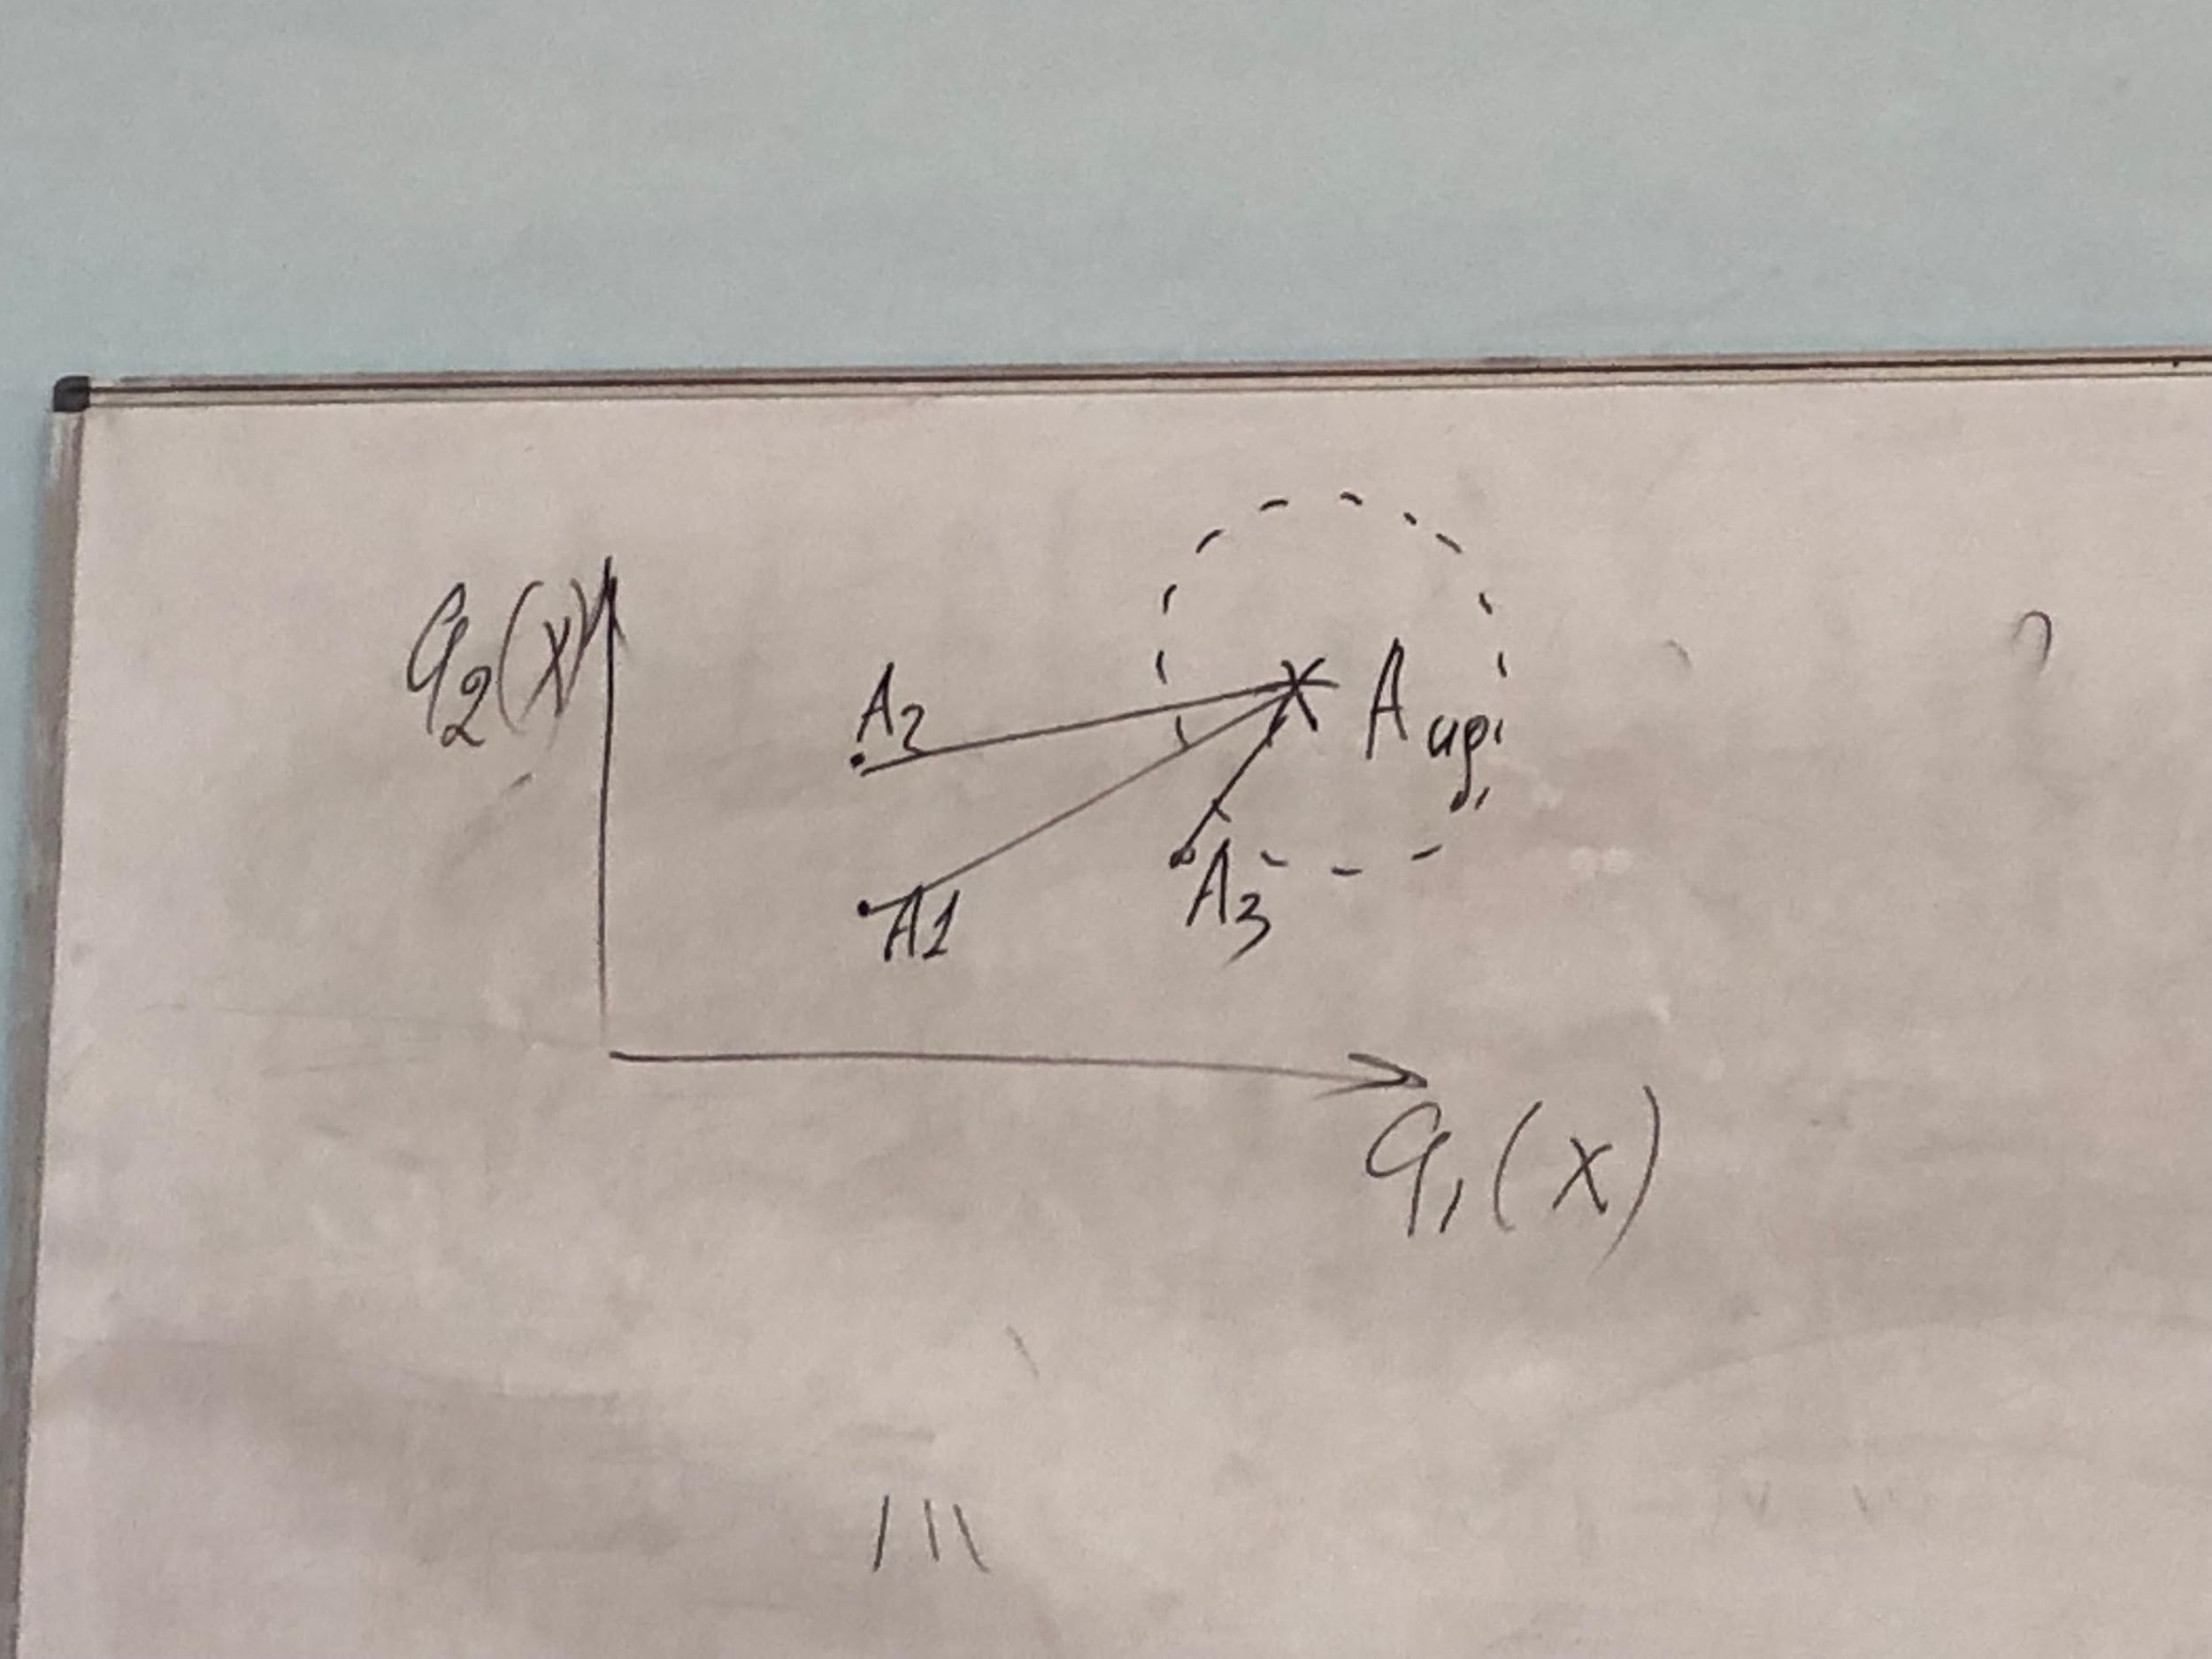 q₂(x)
A₂
A ид.
A1
A₃
q₁(x)